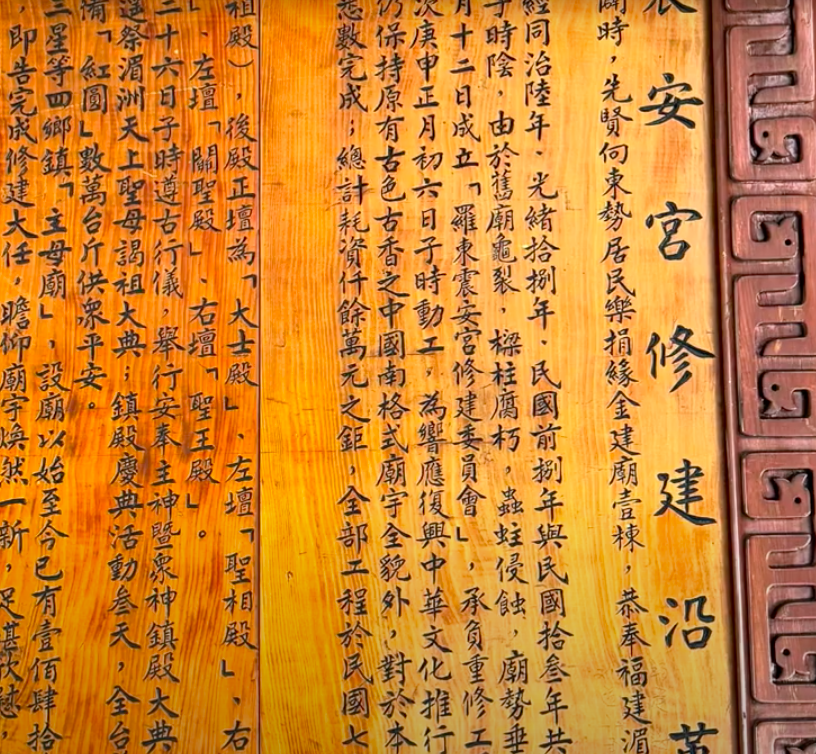 安宮修建沿
時，先賢向東勢居民樂捐緣金建廟壹棟，恭奉福建湄
經同治陸年、光緒拾捌年、民國前捌年與民國拾叁年共
子時陰，由於舊廟龜裂，樑柱腐朽，蟲蛀侵蝕，廟勢垂
月十二日成立「羅東震安宮修建委員會」，承負重修工
次庚申正月初六日子時動工，為響應復興中華文化推行
仍保持原有古色古香之中國南格式廟宇全貌外，對於本
悉數完成；總計耗資仟餘萬元之鉅，全部工程於民國七
祖殿），後殿正壇為「大士殿」、左壇「聖相殿」、右
」、左壇「關聖殿」、右壇「聖王殿」。
二十六日子時遵古行儀，舉行安奉主神暨眾神鎮殿大典
遥祭湄洲天上聖母謁祖大典；鎮殿慶典活動叁天，全台
備「紅圓」數萬台斤供眾平安。
三星等四鄉鎮「主母廟」，設廟以始至今已有壹佰肆拾
，即告完成修建大任，瞻仰廟宇煥然一新，足甚欣慰，